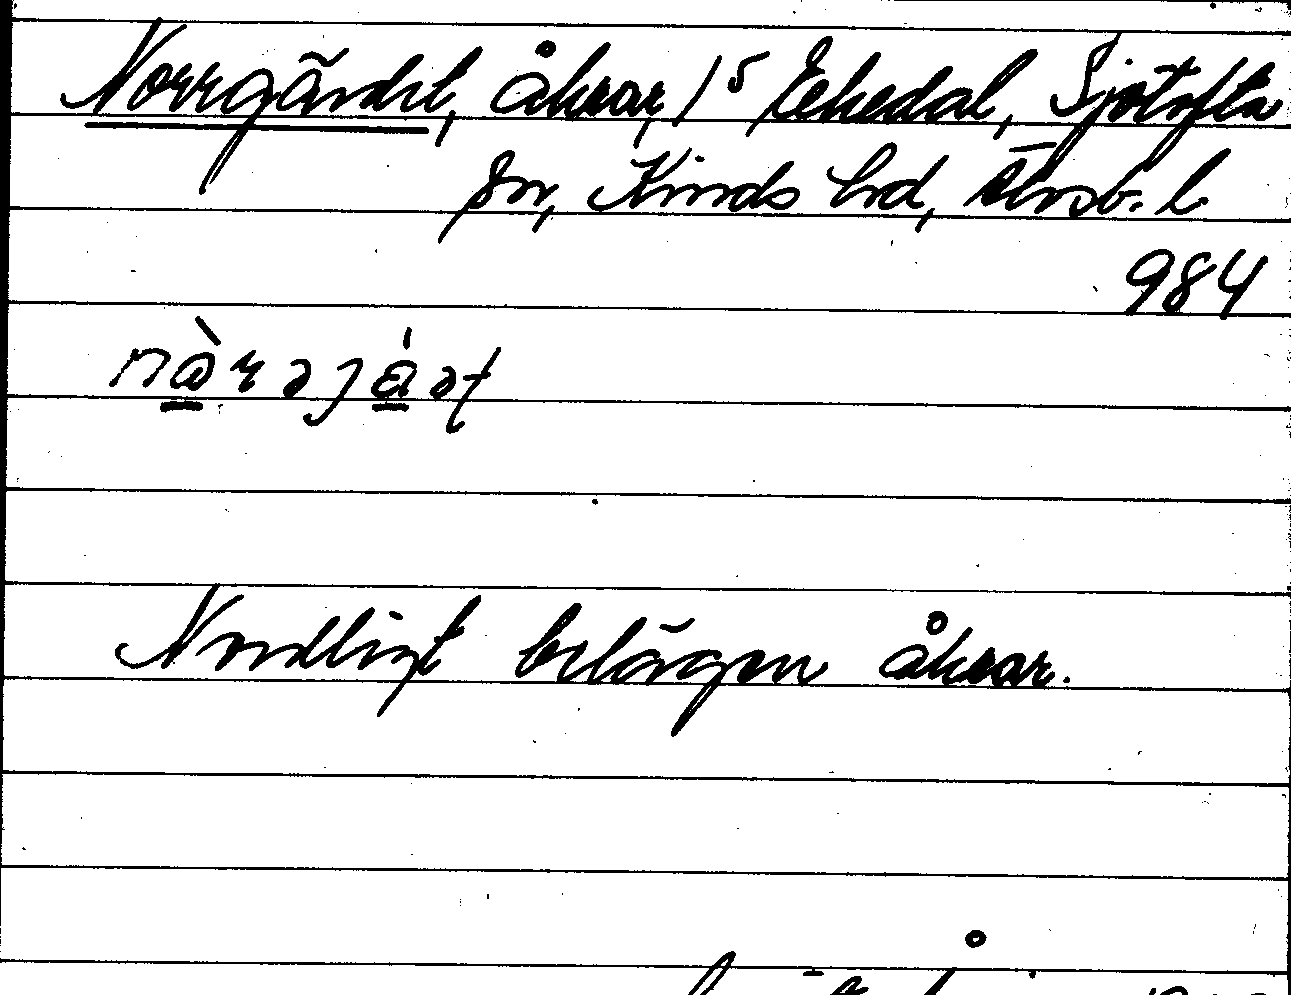 Norrgärdet, åkrar, 1⁵ Ekedal, Sjötofta
sn, Kinds hd, Älvsb. l
984
Nordligt belägen åkrar.